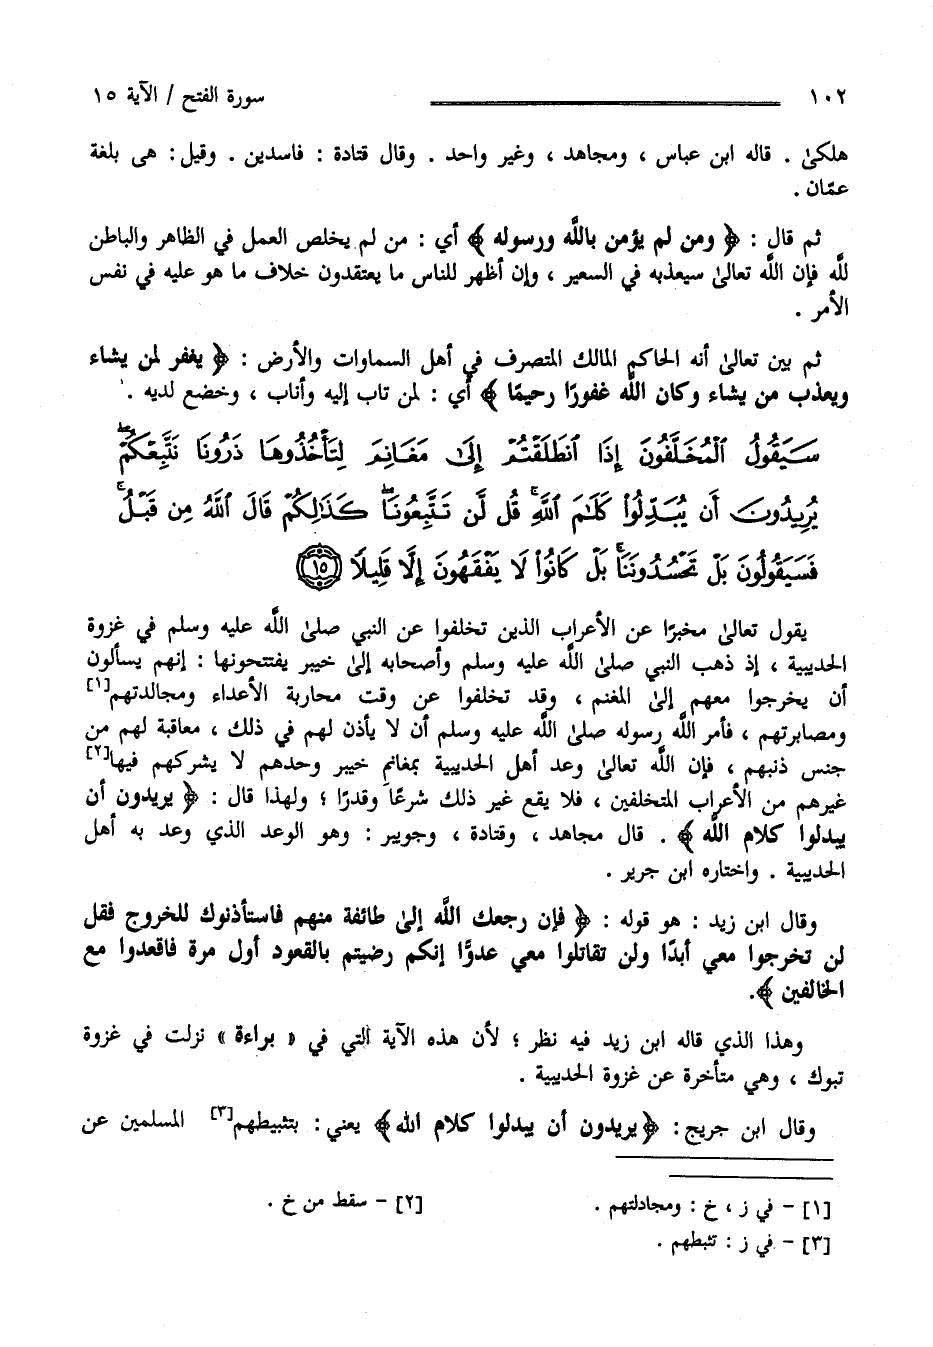 ١٠٢ سورة الفتح / الآية ١٥
هلكىٰ . قاله ابن عباس ، ومجاهد ، وغير واحد . وقال قتادة : فاسدين . وقيل : هى بلغة
عمّان .
ثم قال : ﴿ ومن لم يؤمن باللَّه ورسوله ﴾ أي : من لم يخلص العمل في الظاهر والباطن
للَّه فإن اللَّه تعالىٰ سيعذبه في السعير ، وإن أظهر للناس ما يعتقدون خلاف ما هو عليه في نفس
الأمر .
ثم بين تعالىٰ أنه الحاكم المالك المتصرف في أهل السماوات والأرض : ﴿ يغفر لمن يشاء
ويعذب من يشاء وكان اللَّه غفورًا رحيمًا ﴾ أي : لمن تاب إليه وأناب ، وخضع لديه .
سَيَقُولُ ٱلْمُخَلَّفُونَ إِذَا ٱنطَلَقْتُمْ إِلَىٰ مَغَانِمَ لِتَأْخُذُوهَا ذَرُونَا نَتَّبِعْكُمْ ۖ
يُرِيدُونَ أَن يُبَدِّلُوا۟ كَلَٰمَ ٱللَّهِ ۚ قُل لَّن تَتَّبِعُونَا ۖ كَذَٰلِكُمْ قَالَ ٱللَّهُ مِن قَبْلُ ۖ
فَسَيَقُولُونَ بَلْ تَحْسُدُونَنَا ۚ بَلْ كَانُوا۟ لَا يَفْقَهُونَ إِلَّا قَلِيلًا ١٥
يقول تعالىٰ مخبرًا عن الأعراب الذين تخلفوا عن النبي صلىٰ اللَّه عليه وسلم في غزوة
الحديبية ، إذ ذهب النبي صلىٰ اللَّه عليه وسلم وأصحابه إلىٰ خيبر يفتتحونها : إنهم يسألون
أن يخرجوا معهم إلىٰ المغنم ، وقد تخلفوا عن وقت محاربة الأعداء ومجالدتهم[١]
ومصابرتهم ، فأمر اللَّه رسوله صلىٰ اللَّه عليه وسلم أن لا يأذن لهم في ذلك ، معاقبة لهم من
جنس ذنبهم ، فإن اللَّه تعالىٰ وعد أهل الحديبية بمغانم خيبر وحدهم لا يشركهم فيها[٢]
غيرهم من الأعراب المتخلفين ، فلا يقع غير ذلك شرعًا وقدرًا ؛ ولهذا قال : ﴿ يريدون أن
يبدلوا كلام اللَّه ﴾ . قال مجاهد ، وقتادة ، وجويبر : وهو الوعد الذي وعد به أهل
الحديبية . واختاره ابن جرير .
وقال ابن زيد : هو قوله : ﴿ فإن رجعك اللَّه إلىٰ طائفة منهم فاستأذنوك للخروج فقل
لن تخرجوا معي أبدًا ولن تقاتلوا معي عدوًّا إنكم رضيتم بالقعود أول مرة فاقعدوا مع
الخالفين ﴾.
وهذا الذي قاله ابن زيد فيه نظر ؛ لأن هذه الآية التي في « براءة » نزلت في غزوة
تبوك ، وهي متأخرة عن غزوة الحديبية .
وقال ابن جريج : ﴿يريدون أن يبدلوا كلام الله﴾ يعني : بتثبيطهم[٣] المسلمين عن
[١] - في ز ، خ : ومجادلتهم . [٢] - سقط من خ .
[٣] - في ز : تثبطهم .